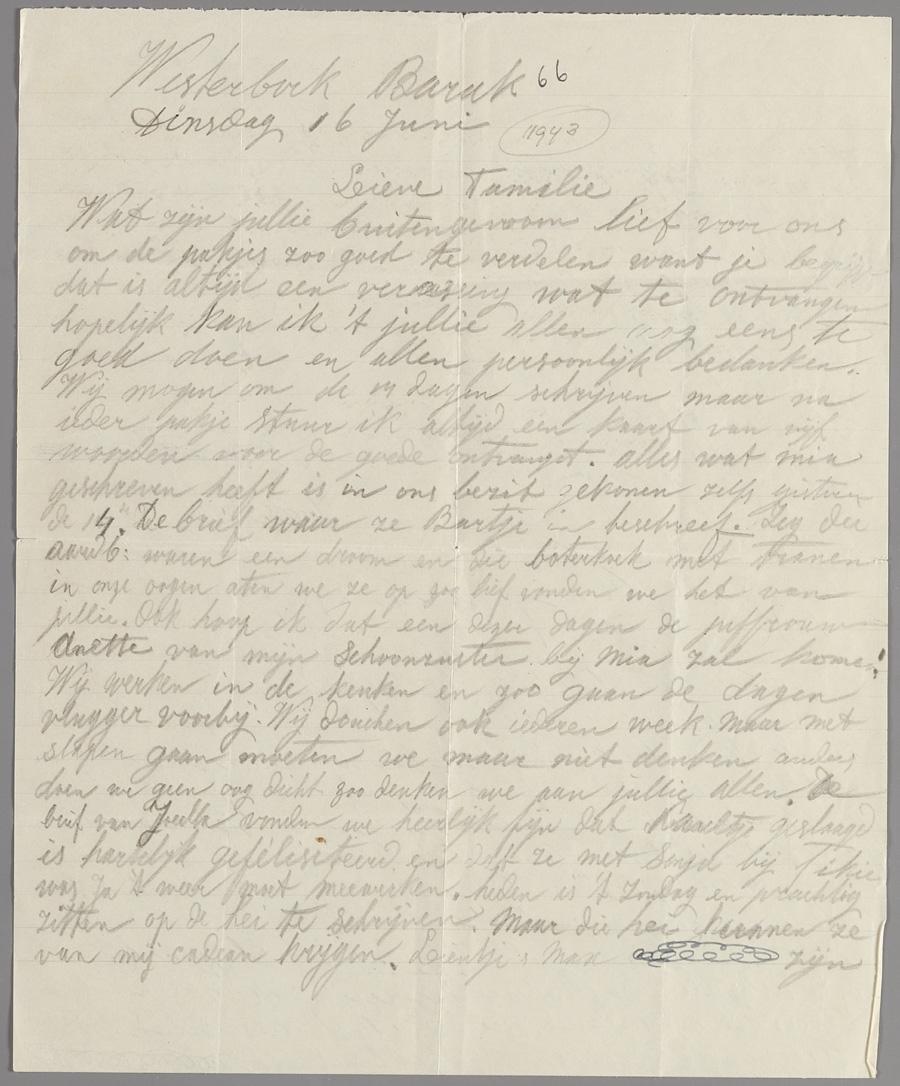 Westerbork Barak 66
Dinsdag 16 Juni 1943
Leieve Familie
Wat zijn jullie buitengewoon lief voor ons
om de pakjes zoo goed te verdelen want je begrijpt
dat is altijd een verassing wat te ontvangen
hopelijk kan ik 't jullie allen nog eens te
goed doen en allen persoonlijk bedanken.
Wij mogen om de 14 dagen schrijven maar na
ieder pakje stuur ik altijd een kaart van vijf
woorden voor de goede ontvangst. alles wat mia
geschreven heeft is in ons bezit gekomen zelfs gisteren
de 14e. De brief waar ze Bartje in beschreef. Zeg die
aardb: waren een droom en die boterkoek met tranen
in onze oogen aten we ze op zoo lief vonden we het van
jullie. Ook hoop ik dat een dezer dagen de juffrouw
Anette van mijn Schoonzuster bij Mia zal komen!
Wij werken in de keuken en zoo gaan de dagen
vlugger voorbij. Wij douchen ook iederen week. Maar met
slapen gaan moeten we maar niet denken anders
doen we geen oog dicht zoo denken we aan jullie allen. De
brief van vonden we heerlijk fijn dat geslaagd
is hartelijk gefeliciteerd en dat ze met bij
was ja 't weer moet meewerken. heden is 't Zondag en prachtig
zitten op de hei te schrijven. Maar die hei kunnen ze
van mij cadeau krygen. Leentje s Max zijn